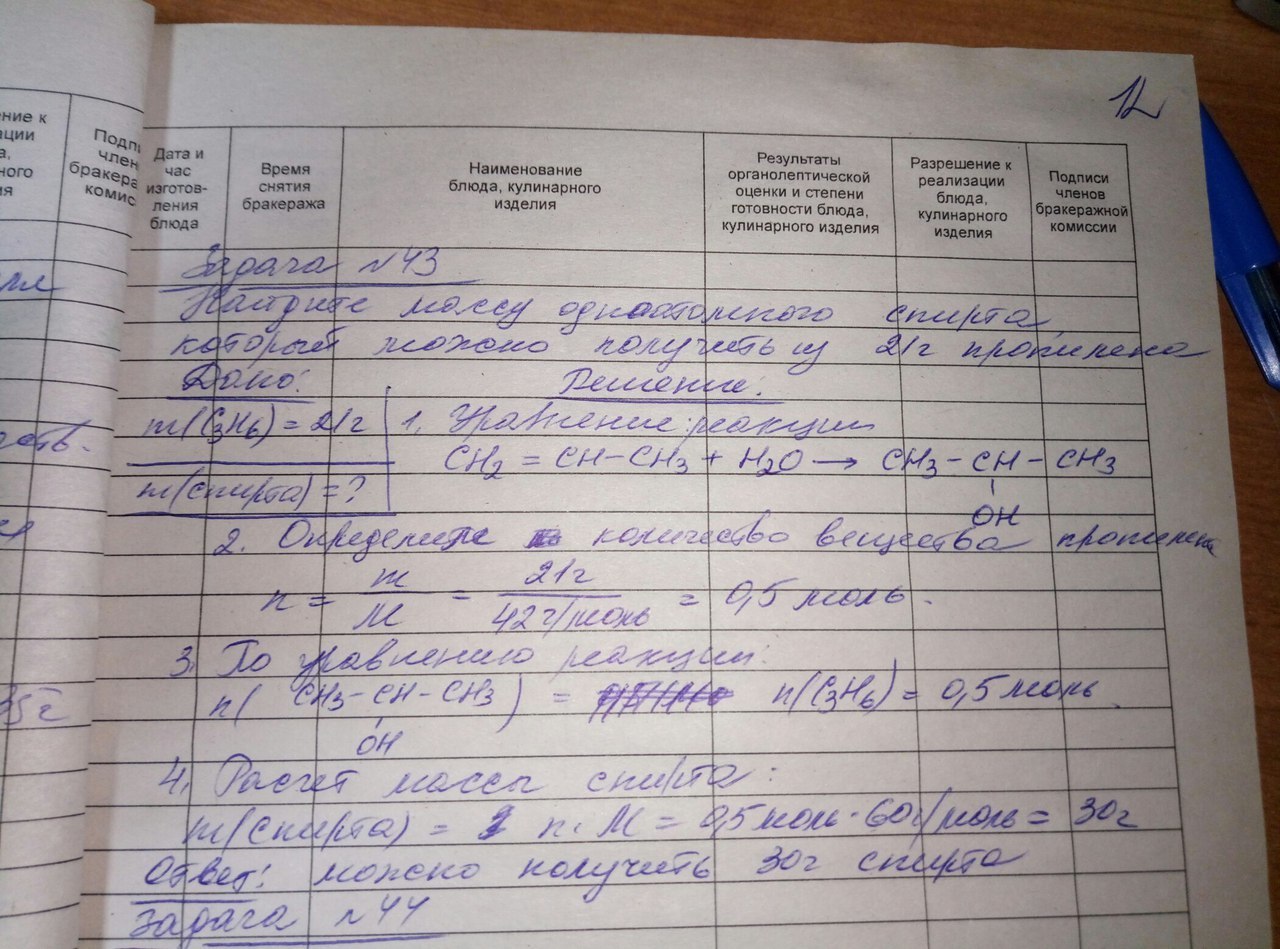 12
ние к
ации
а,
ного
ия
Подпи
член
бракера
комис
Дата и
час
изготов-
ления
блюда
Время
снятия
бракеража
Наименование
блюда, кулинарного
изделия
Результаты
органолептической
оценки и степени
готовности блюда,
кулинарного изделия
Разрешение к
реализации
блюда,
кулинарного
изделия
Подписи
членов
бракеражной
комиссии
Задача №43
Найдите массу одноатомного спирта,
который можно получить из 21г пропилена
Дано: Решение:
m(C3H6) = 21г 1. Уравнение реакции
CH2 = CH-CH3 + H2O → CH3 - CH - CH3
m(спирта) = ? OH
2. Определите количество вещества пропилена
n = m/M = 21г/42г/моль = 0,5 моль.
3. По уравнению реакции:
n( CH3-CH-CH3 ) = n(C3H6) = 0,5 моль.
OH
4. Расчет массы спирта:
m(спирта) = n·M = 0,5 моль · 60г/моль = 30г
Ответ: можно получить 30г спирта
Задача №44